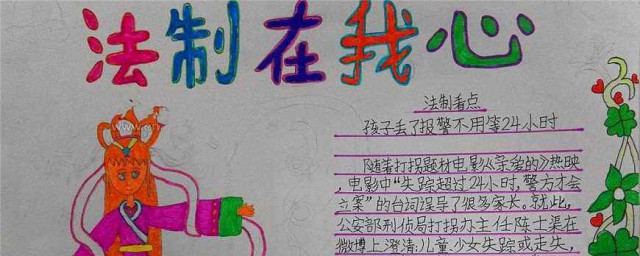 法制在我心
法制看点
孩子丢了报警不用等24小时
随着打拐题材电影《亲爱的》热映
，电影中“失踪超过24小时，警方才会
立案”的台词误导了很多家长。就此，
公安部刑侦局打拐办主任陈士渠在
微博上澄清：儿童、少女失踪或走失，